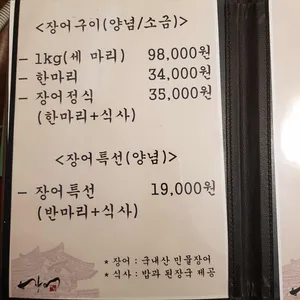 <장어구이(양념/소금)>
- 1kg(세 마리) 98,000원
- 한마리 34,000원
- 장어정식 35,000원
(한마리+식사)
<장어특선(양념)>
- 장어특선 19,000원
(반마리+식사)
* 장어 : 국내산 민물장어
* 식사 : 밥과 된장국 제공